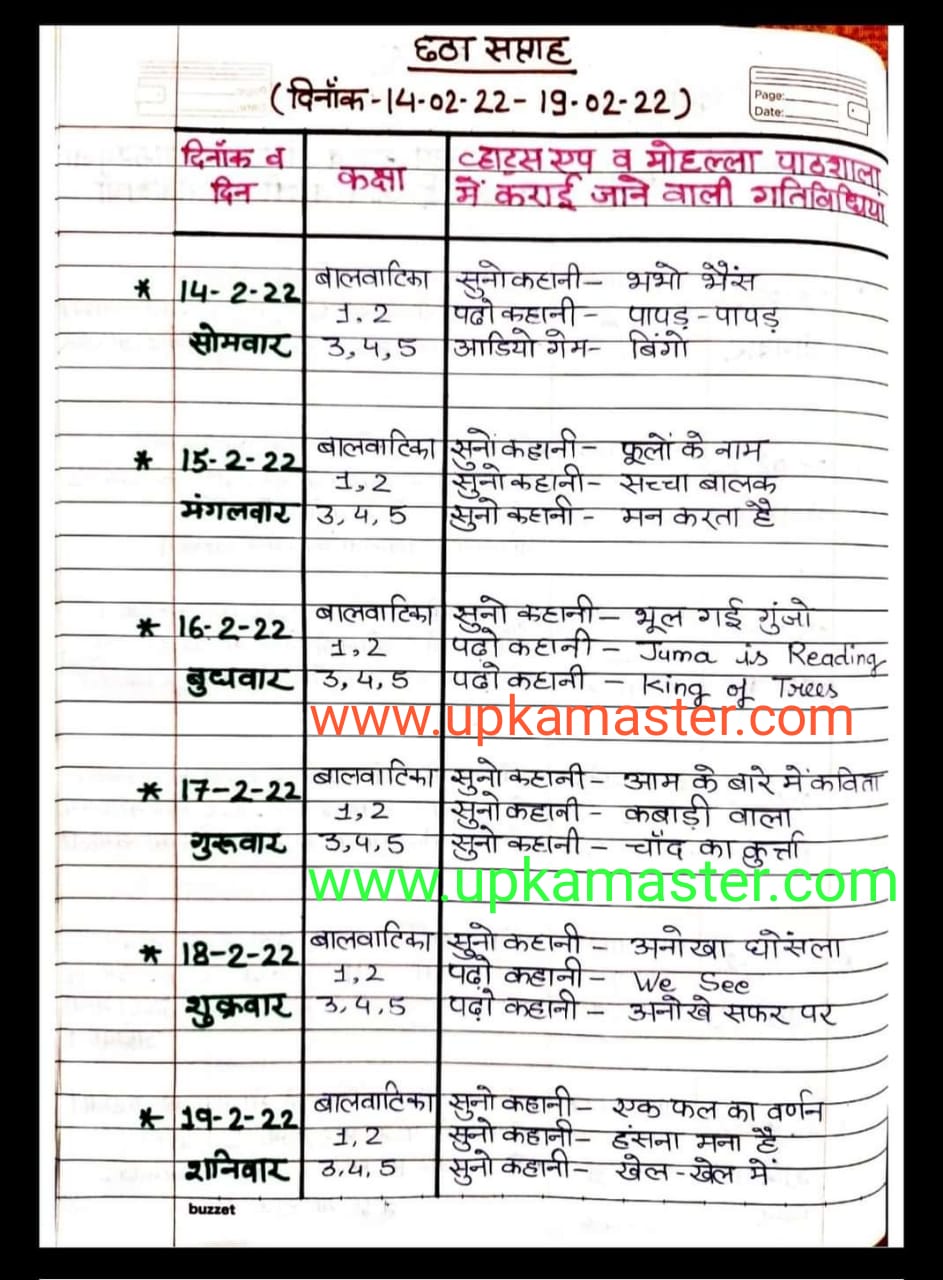 छठा सप्ताह
(दिनाँक-14-02-22-19-02-22)
Page:
Date:
दिनाँक व दिन कक्षा व्हाट्स एप व मोहल्ला पाठशाला में कराई जाने वाली गतिविधियां
बालवाटिका सुनो कहानी- भभो भैंस
* 14-2-22 1,2 पढो कहानी- पापड़-पापड़
सोमवार 3,4,5 आडियो गेम- बिंगो
बालवाटिका सुनों कहानी- फूलों के नाम
* 15-2-22 1,2 सुनो कहानी- सच्चा बालक
मंगलवार 3,4,5 सुनो कहानी- मन करता है
बालवाटिका सुनो कहानी- भूल गई गुंजो
* 16-2-22 1,2 पढो कहानी- Juma is Reading
बुधवार 3,4,5 पढो कहानी- King of Trees
www.upkamaster.com
बालवाटिका सुनो कहानी- आम के बारे में कविता
* 17-2-22 1,2 सुनो कहानी- कबाड़ी वाला
गुरूवार 3,4,5 सुनो कहानी- चाँद का कुर्त्ता
www.upkamaster.com
बालवाटिका सुनो कहानी- अनोखा घोंसला
* 18-2-22 1,2 पढो कहानी- We See
शुक्रवार 3,4,5 पढ़ो कहानी- अनोखे सफर पर
बालवाटिका सुनो कहानी- एक फल का वर्णन
* 19-2-22 1,2 सुनो कहानी- हंसना मना है
शनिवार 3,4,5 सुनो कहानी- खेल-खेल में
buzzet